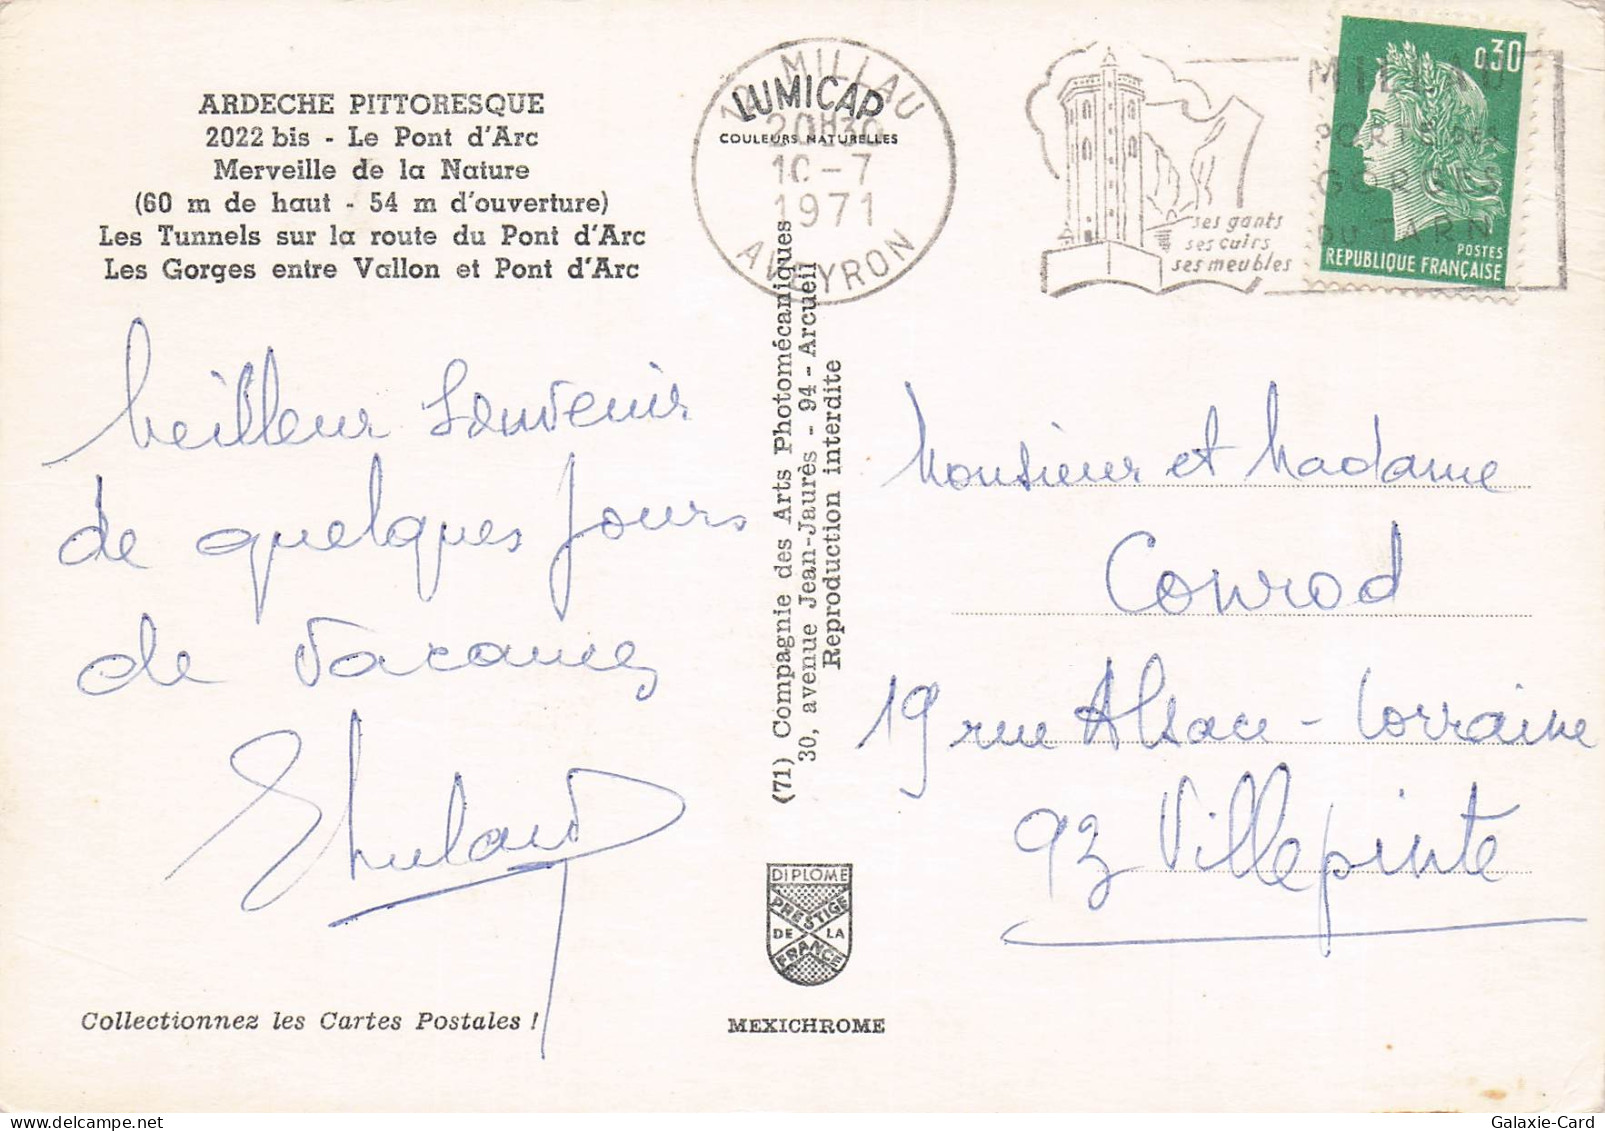 ARDECHE PITTORESQUE
2022 bis - Le Pont d'Arc
Merveille de la Nature
(60 m de haut - 54 m d'ouverture)
Les Tunnels sur la route du Pont d'Arc
Les Gorges entre Vallon et Pont d'Arc
Meilleur souvenir
de quelques jours
de vacances
Collectionnez les Cartes Postales !
LUMICAP
COULEURS NATURELLES
12 MILLAU
20H30
10-7
1971
AVEYRON
(71) Compagnie des Arts Photomécaniques
30, avenue Jean-Jaurès - 94 - Arcueil
Reproduction interdite
DIPLOME
PRESTIGE
DE LA
FRANCE
MEXICHROME
ses gants
ses cuirs
ses meubles
MILLAU
PORTE DES
GORGES
DU TARN
0,30
POSTES
REPUBLIQUE FRANÇAISE
Monsieur et Madame
Conrod
19 rue Alsace-Lorraine
93 Villepinte
Galaxie-Card